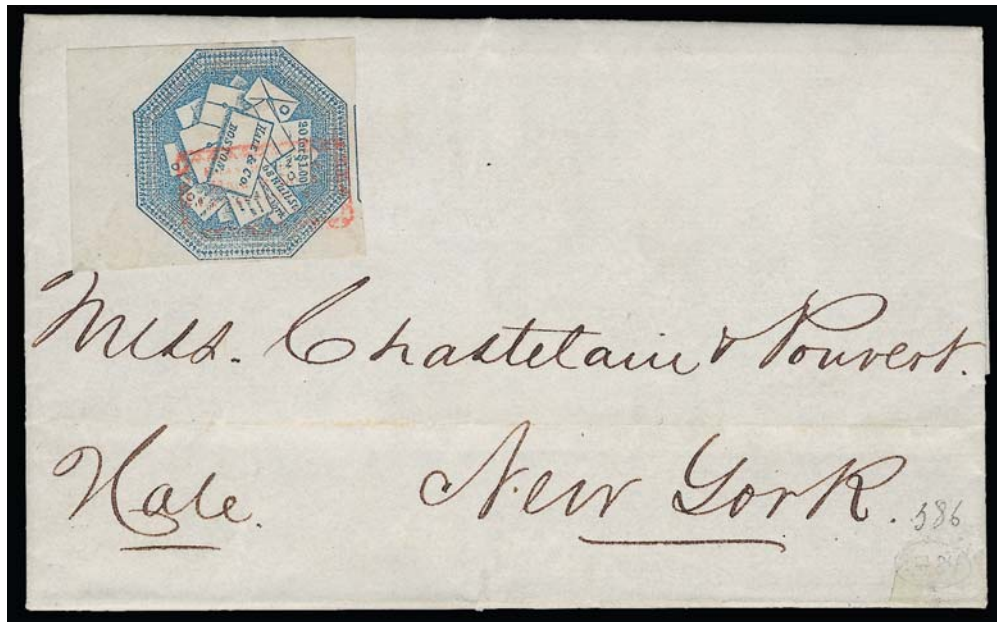 20 for $1.00
HALE & Co.
BOSTON.
Mess. Chastelain & Pouvert.
Hale. New York.
586